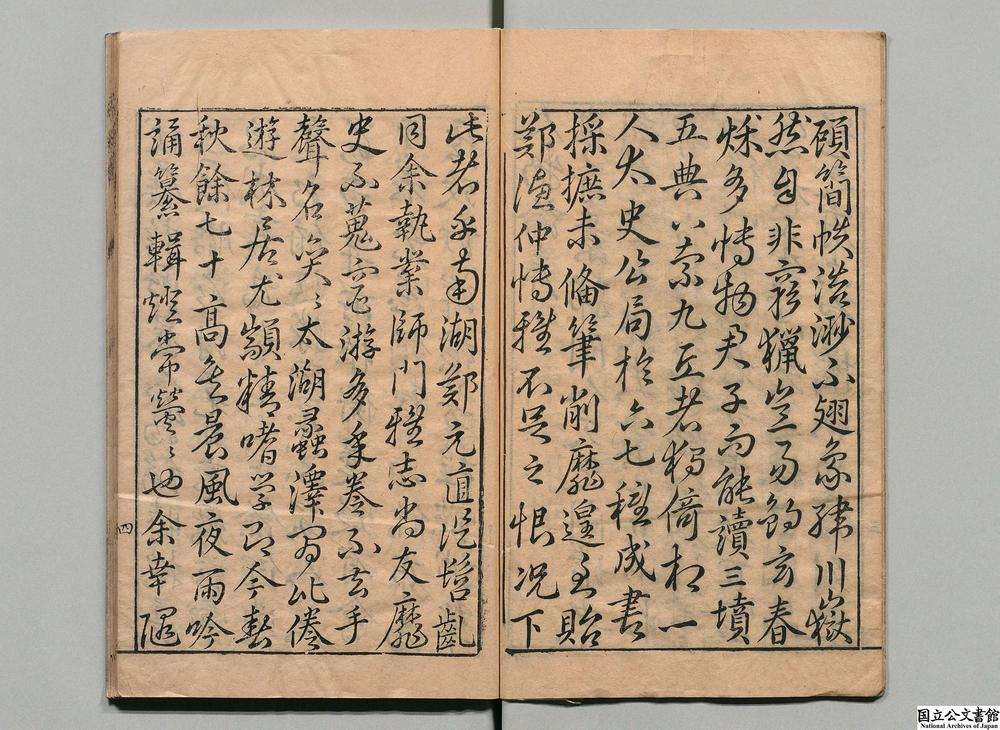 顧簡帙浩渺不翅象緯川嶽
然自非窮獵豈易鉤玄春
秌多博物君子而能讀三墳
五典八索九丘者猶倚相一
人太史公局於六七種成書
採摭未備筆削靡遑至貽
鄭漁仲博雅不足之恨況下
此者乎南湖鄭元直從髫齔
同余執業師門雅志尚友靡
史不蒐宦游多年卷不去手
聲名奕〻太湖蠡澤間比倦
遊林居尤顓精嗜学即今春
秋餘七十高矣晨風夜雨吟
誦纂輯燈常熒〻也余幸
四
国立公文書館
National Archives of Japan